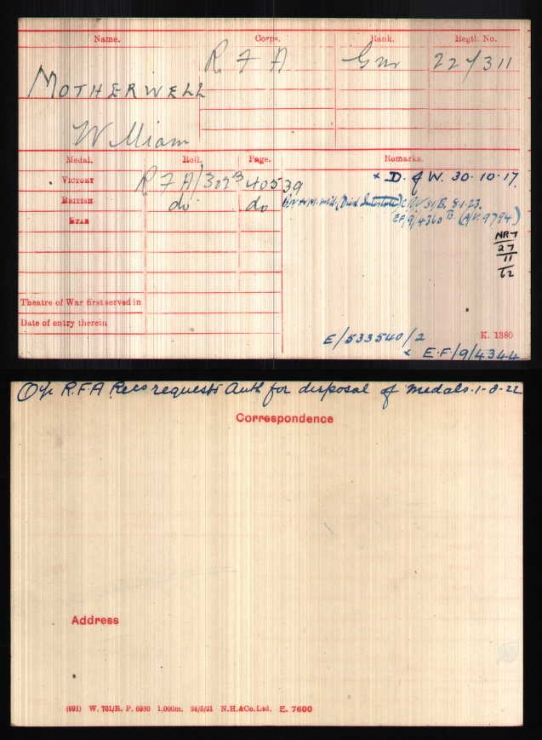 Name. Corps. Rank. Regtl. No.
R F A Gnr 22/311
MOTHERWELL
William
Medal. Roll. Page. Remarks.
Victory R F A/309B 40539 × D. of W. 30-10-17.
British do do Died
Star (A/V.9794)
NR-7
27
11
62
Theatre of War first served in
Date of entry therein
K. 1380
E/533540/2
× E.F/9/4344
O i/c R.F.A Recs requests Auth for disposal of medals. 1-8-22
Correspondence
Address
(991) W. 781/R. P. 6930 1,000m. 24/5/21 N.H.&Co.Ltd. E. 7600